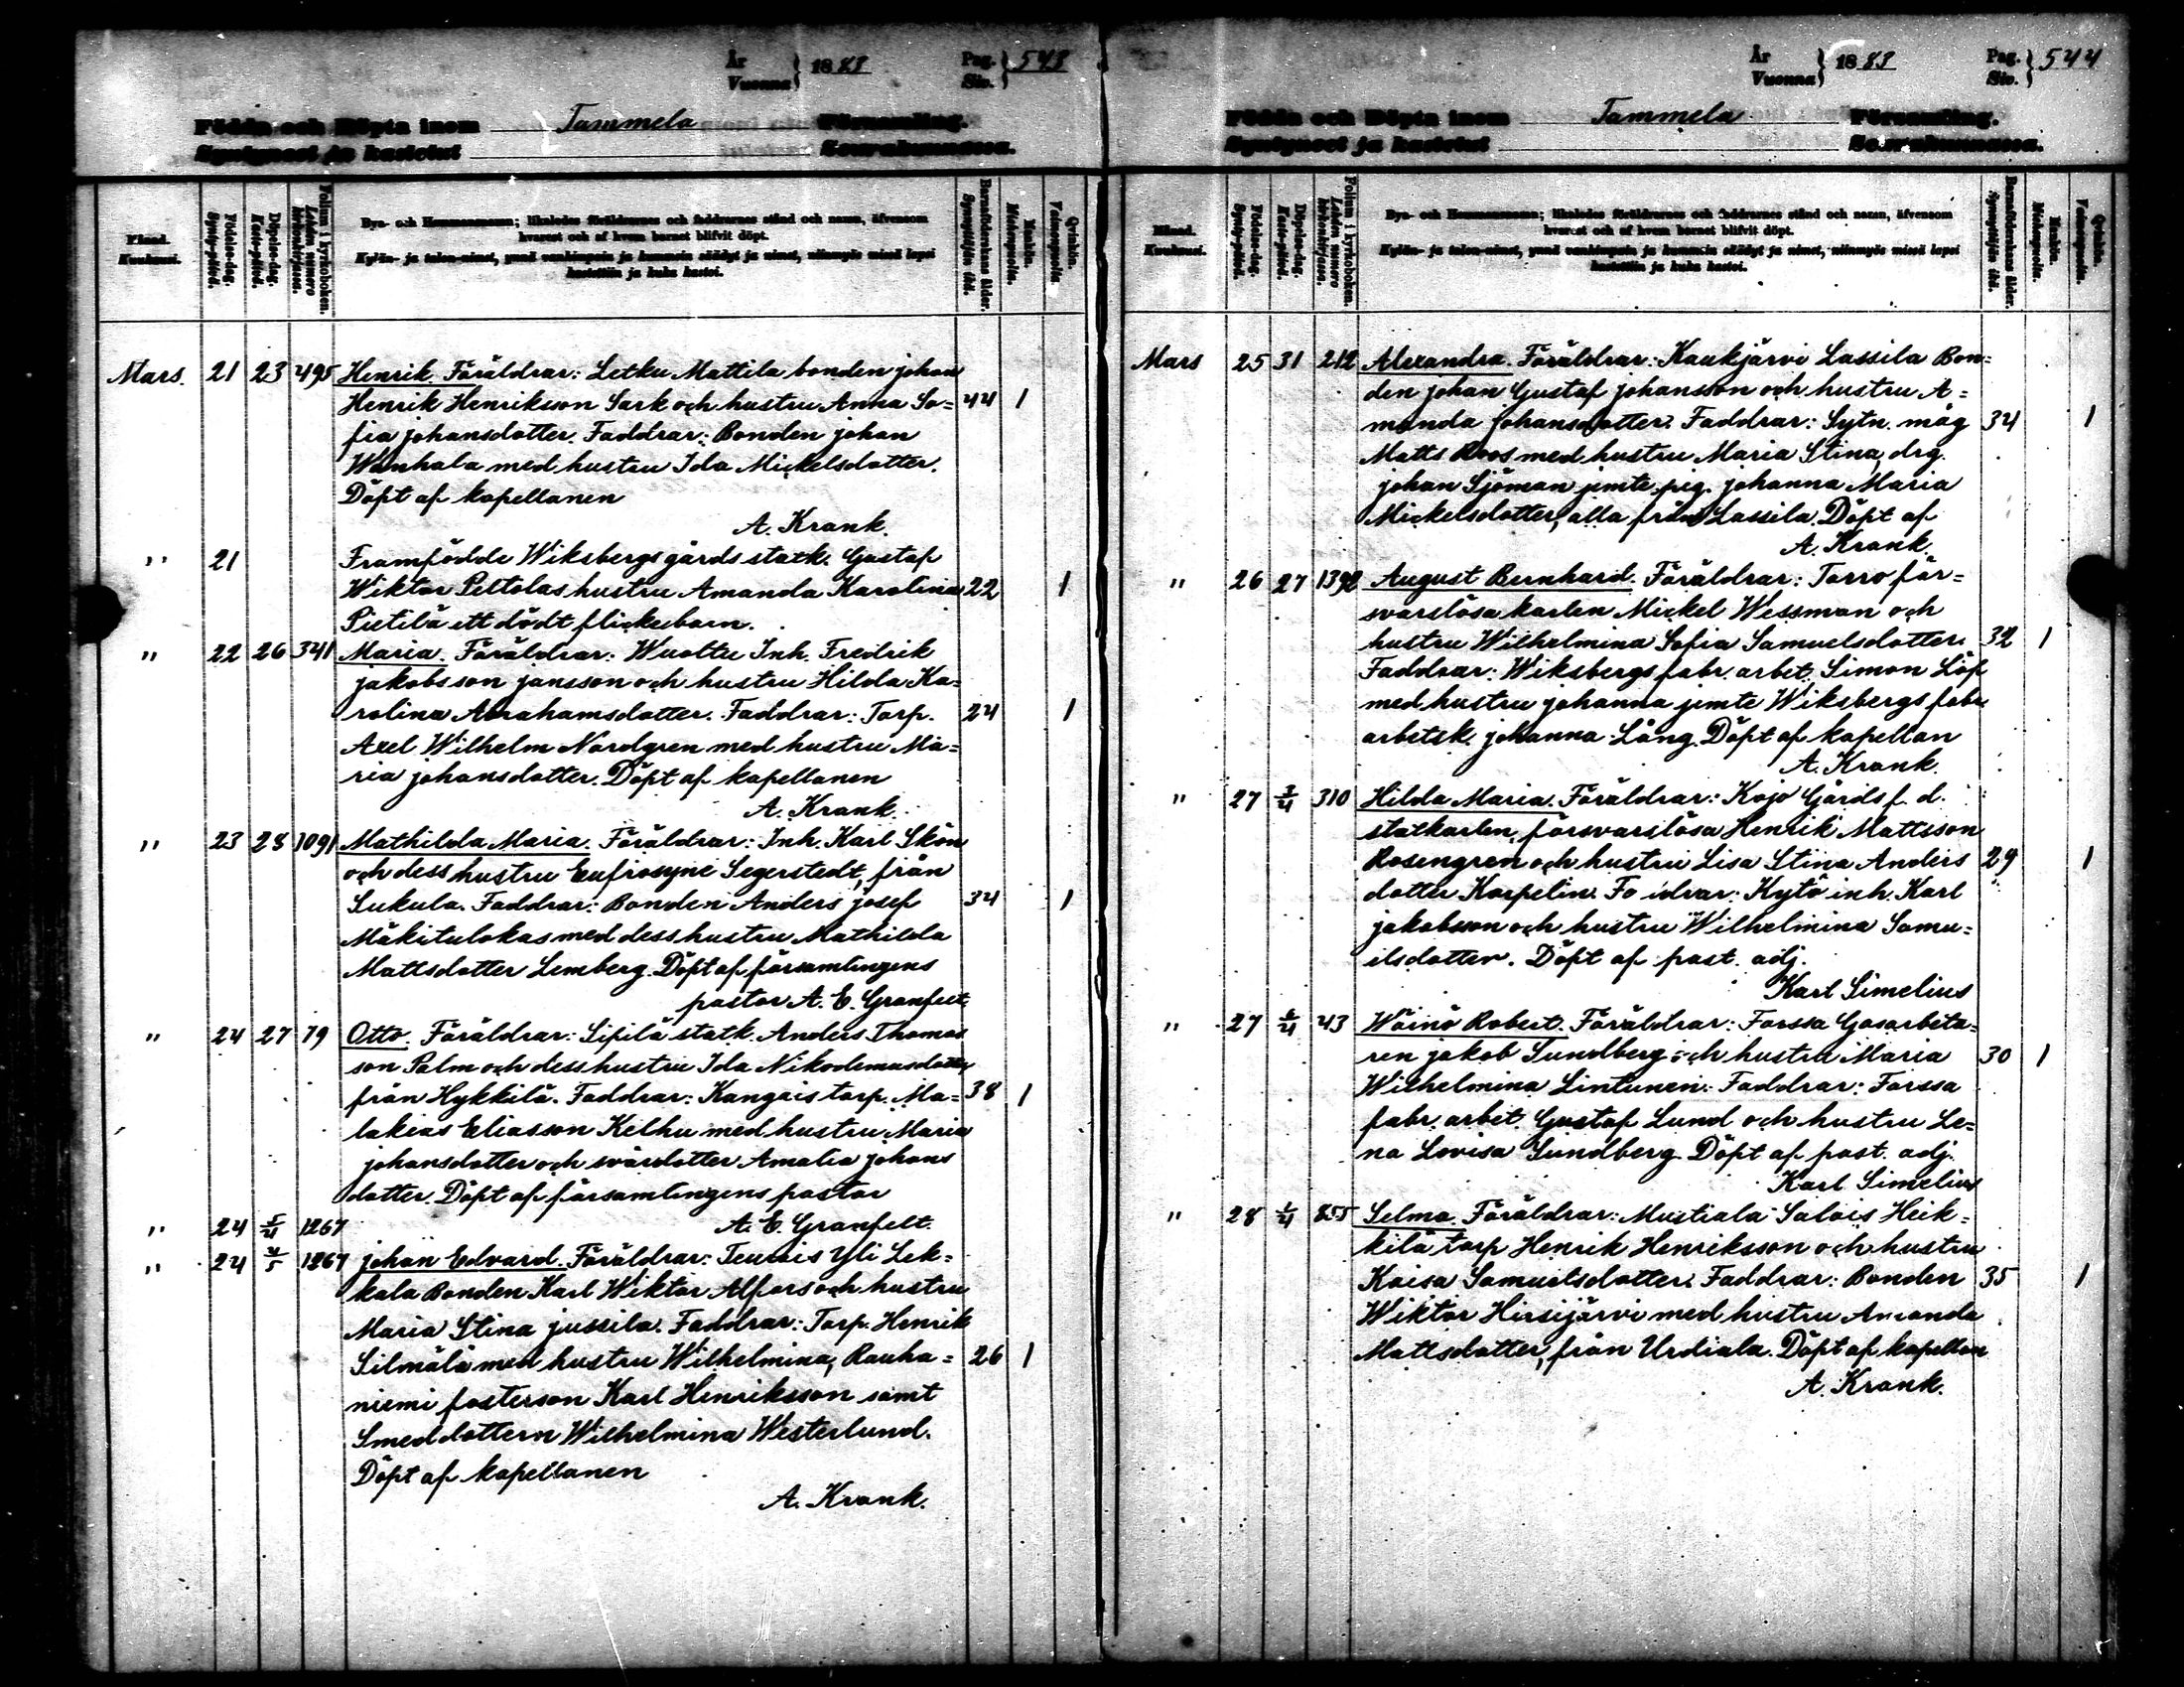 År
Vuonna } 1888 Pag.
Siv. } 543
Födda och Döpta inom Tammela Församling.
Syntyneet ja kastetut Seurakunnassa.
Månad.
Kuukausi.
Födelse-dag.
Synty-päivä.
Döpelse-dag.
Kaste-päivä.
Folium i kyrkoboken.
Lehden numero
kirkonkirjassa.
Byn- och Hemmansnamn; likaledes föräldrarnes och faddrarnes stånd och namn, äfvensom
hvarest och af hvem barnet blifvit döpt.
Kylän- ja talon-nimet, ynnä vanhimpain ja kummein säädyt ja nimet, niinmyös missä lapsi
kastettiin ja kuka kastoi.
Barnaföderskans ålder.
Synnyttäjän ikä.
Mankön.
Miehenpuolta.
Qvinkön.
Vaimonpuolta.
Mars. 21 23 495 Henrik. Föräldrar: Letku Mattila bonden johan
Henrik Henriksson Sark och hustru Anna So= 44 1
fia johansdotter. Faddrar: Bonden johan
Wanhala med hustru Ida Mickelsdotter.
Döpt af kapellanen
A. Krank.
" 21 Framfödde Wiksbergs gårds statk. Gustaf
Wiktor Peltolas hustru Amanda Karolina 22 1
Pietilä ett dödt flickebarn.
" 22 26 341 Maria. Föräldrar: Wuoltu Inh. Fredrik
jakobsson jansson och hustru Hilda Ka=
rolina Abrahamsdotter. Faddrar: Torp. 24 1
Axel Wilhelm Nordgren med hustru Ma=
ria johansdotter. Döpt af kapellanen
A. Krank.
" 23 28 1091 Mathilda Maria. Föräldrar: Inh. Karl Skön
och dess hustru Eufrosyne Segerstedt, från
Sukula. Faddrar: Bonden Anders josef 34 1
Mäkitulokas med dess hustru Mathilda
Mattsdotter Lemberg. Döpt af församlingens
pastor A. E. Granfelt.
" 24 27 79 Otto. Föräldrar: Sipilä statk. Anders Thomas
son Palm och dess hustru Ida Nikodemusdotter
från Hykkilä. Faddrar: Kangais torp. Ma= 38 1
lakias Eliasson Kelhu med hustru Maria
johansdotter och svärdotter Amalia johans
dotter. Döpt af församlingens pastor
" 24 5/4 1267 A. E. Granfelt.
" 24 4/5 1267 johan Edvard. Föräldrar: Teurois Yli Lek=
kala Bonden Karl Wiktor Alfors och hustru
Maria Stina jussila. Faddrar: Torp. Henrik
Silmälä med hustru Wilhelmina, Rauha= 26 1
niemi fosterson Karl Henriksson samt
Smeddottern Wilhelmina Westerlund.
Döpt af kapellanen
A. Krank.
År
Vuonna } 1888 Pag.
Siv. } 544
Födda och Döpta inom Tammela Församling.
Syntyneet ja kastetut Seurakunnassa.
Månad.
Kuukausi.
Födelse-dag.
Synty-päivä.
Döpelse-dag.
Kaste-päivä.
Folium i kyrkoboken.
Lehden numero
kirkonkirjassa.
Byn- och Hemmansnamn; likaledes föräldrarnes och faddrarnes stånd och namn, äfvensom
hvarest och af hvem barnet blifvit döpt.
Kylän- ja talon-nimet, ynnä vanhimpain ja kummein säädyt ja nimet, niinmyös missä lapsi
kastettiin ja kuka kastoi.
Barnaföderskans ålder.
Synnyttäjän ikä.
Mankön.
Miehenpuolta.
Qvinkön.
Vaimonpuolta.
Mars 25 31 212 Alexandra. Föräldrar: Kaukjärvi Lassila Bon=
den johan Gustaf johansson och hustru A=
manda johansdotter. Faddrar: Sytn. måg 34 1
Matts Roos med hustru Maria Stina, drg.
johan Sjöman jemte pig. johanna Maria
Mickelsdotter, alla från Lassila. Döpt af
A. Krank.
" 26 27 1392 August Bernhard. Föräldrar: Torro för=
svarslösa karlen Mickel Wessman och
hustru Wilhelmina Sofia Samuelsdotter. 32 1
Faddrar: Wiksbergs fabr. arbet. Simon Löf
med hustru johanna jemte Wiksbergs fabr.
arbetsk. johanna Lång. Döpt af kapellan
A. Krank.
" 27 3/4 310 Hilda Maria. Föräldrar: Kojo Gårds f. d.
statkarlen, försvarslösa Henrik Mattsson
Rosengren och hustru Lisa Stina Anders 29 1
dotter Karpelin. Fo drar: Kytö inh. Karl
jakobsson och hustru Wilhelmina Samu=
elsdotter. Döpt af past. adj.
Karl Simelius
" 27 2/4 43 Wäinö Robert. Föräldrar: Forssa Gasarbeta=
ren jakob Sundberg och hustru Maria 30 1
Wilhelmina Lintunen. Faddrar: Forssa
fabr. arbet. Gustaf Lund och hustru Le=
na Lovisa Sundberg. Döpt af past. adj.
Karl Simelius
" 28 2/4 855 Selma. Föräldrar: Mustiala Salois Heik=
kilä torp Henrik Henriksson och hustru
Kaisa Samuelsdotter. Faddrar: Bonden 35 1
Wiktor Hirsijärvi med hustru Amanda
Mattsdotter, från Urdiala. Döpt af kapellan
A. Krank.